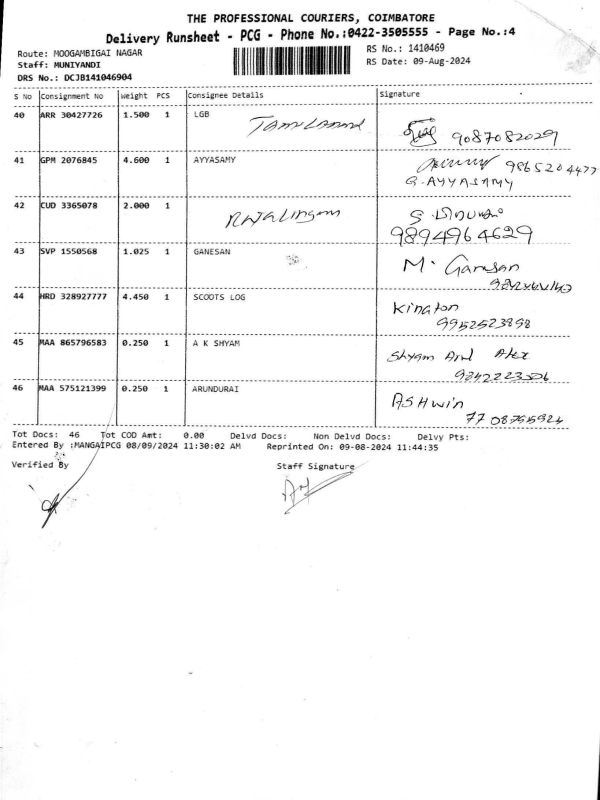 THE PROFESSIONAL COURIERS, COIMBATORE
Delivery Runsheet - PCG - Phone No.:0422-3505555 - Page No.:4
Route: MOOGAMBIGAI NAGAR RS No.: 1410469
Staff: MUNIYANDI RS Date: 09-Aug-2024
DRS No.: DCJB141046904
S No Consignment No weight PCS Consignee Details Signature
40 ARR 30427726 1.500 1 LGB
9087082029
41 GPM 2076845 4.600 1 AYYASAMY 9865204477
G. AYYASAMY
42 CUD 3365078 2.000 1
RAJALINGAM
9894964629
43 SVP 1550568 1.025 1 GANESAN M. Ganesan
44 HRD 328927777 4.450 1 SCOOTS LOG Kington
9952523898
45 MAA 865796583 0.250 1 A K SHYAM Shyam
46 MAA 575121399 0.250 1 ARUNDURAI ASHWIN
Tot Docs: 46 Tot COD Amt: 0.00 Delvd Docs: Non Delvd Docs: Delvy Pts:
Entered By :MANGAIPCG 08/09/2024 11:30:02 AM Reprinted On: 09-08-2024 11:44:35
Verified By Staff Signature